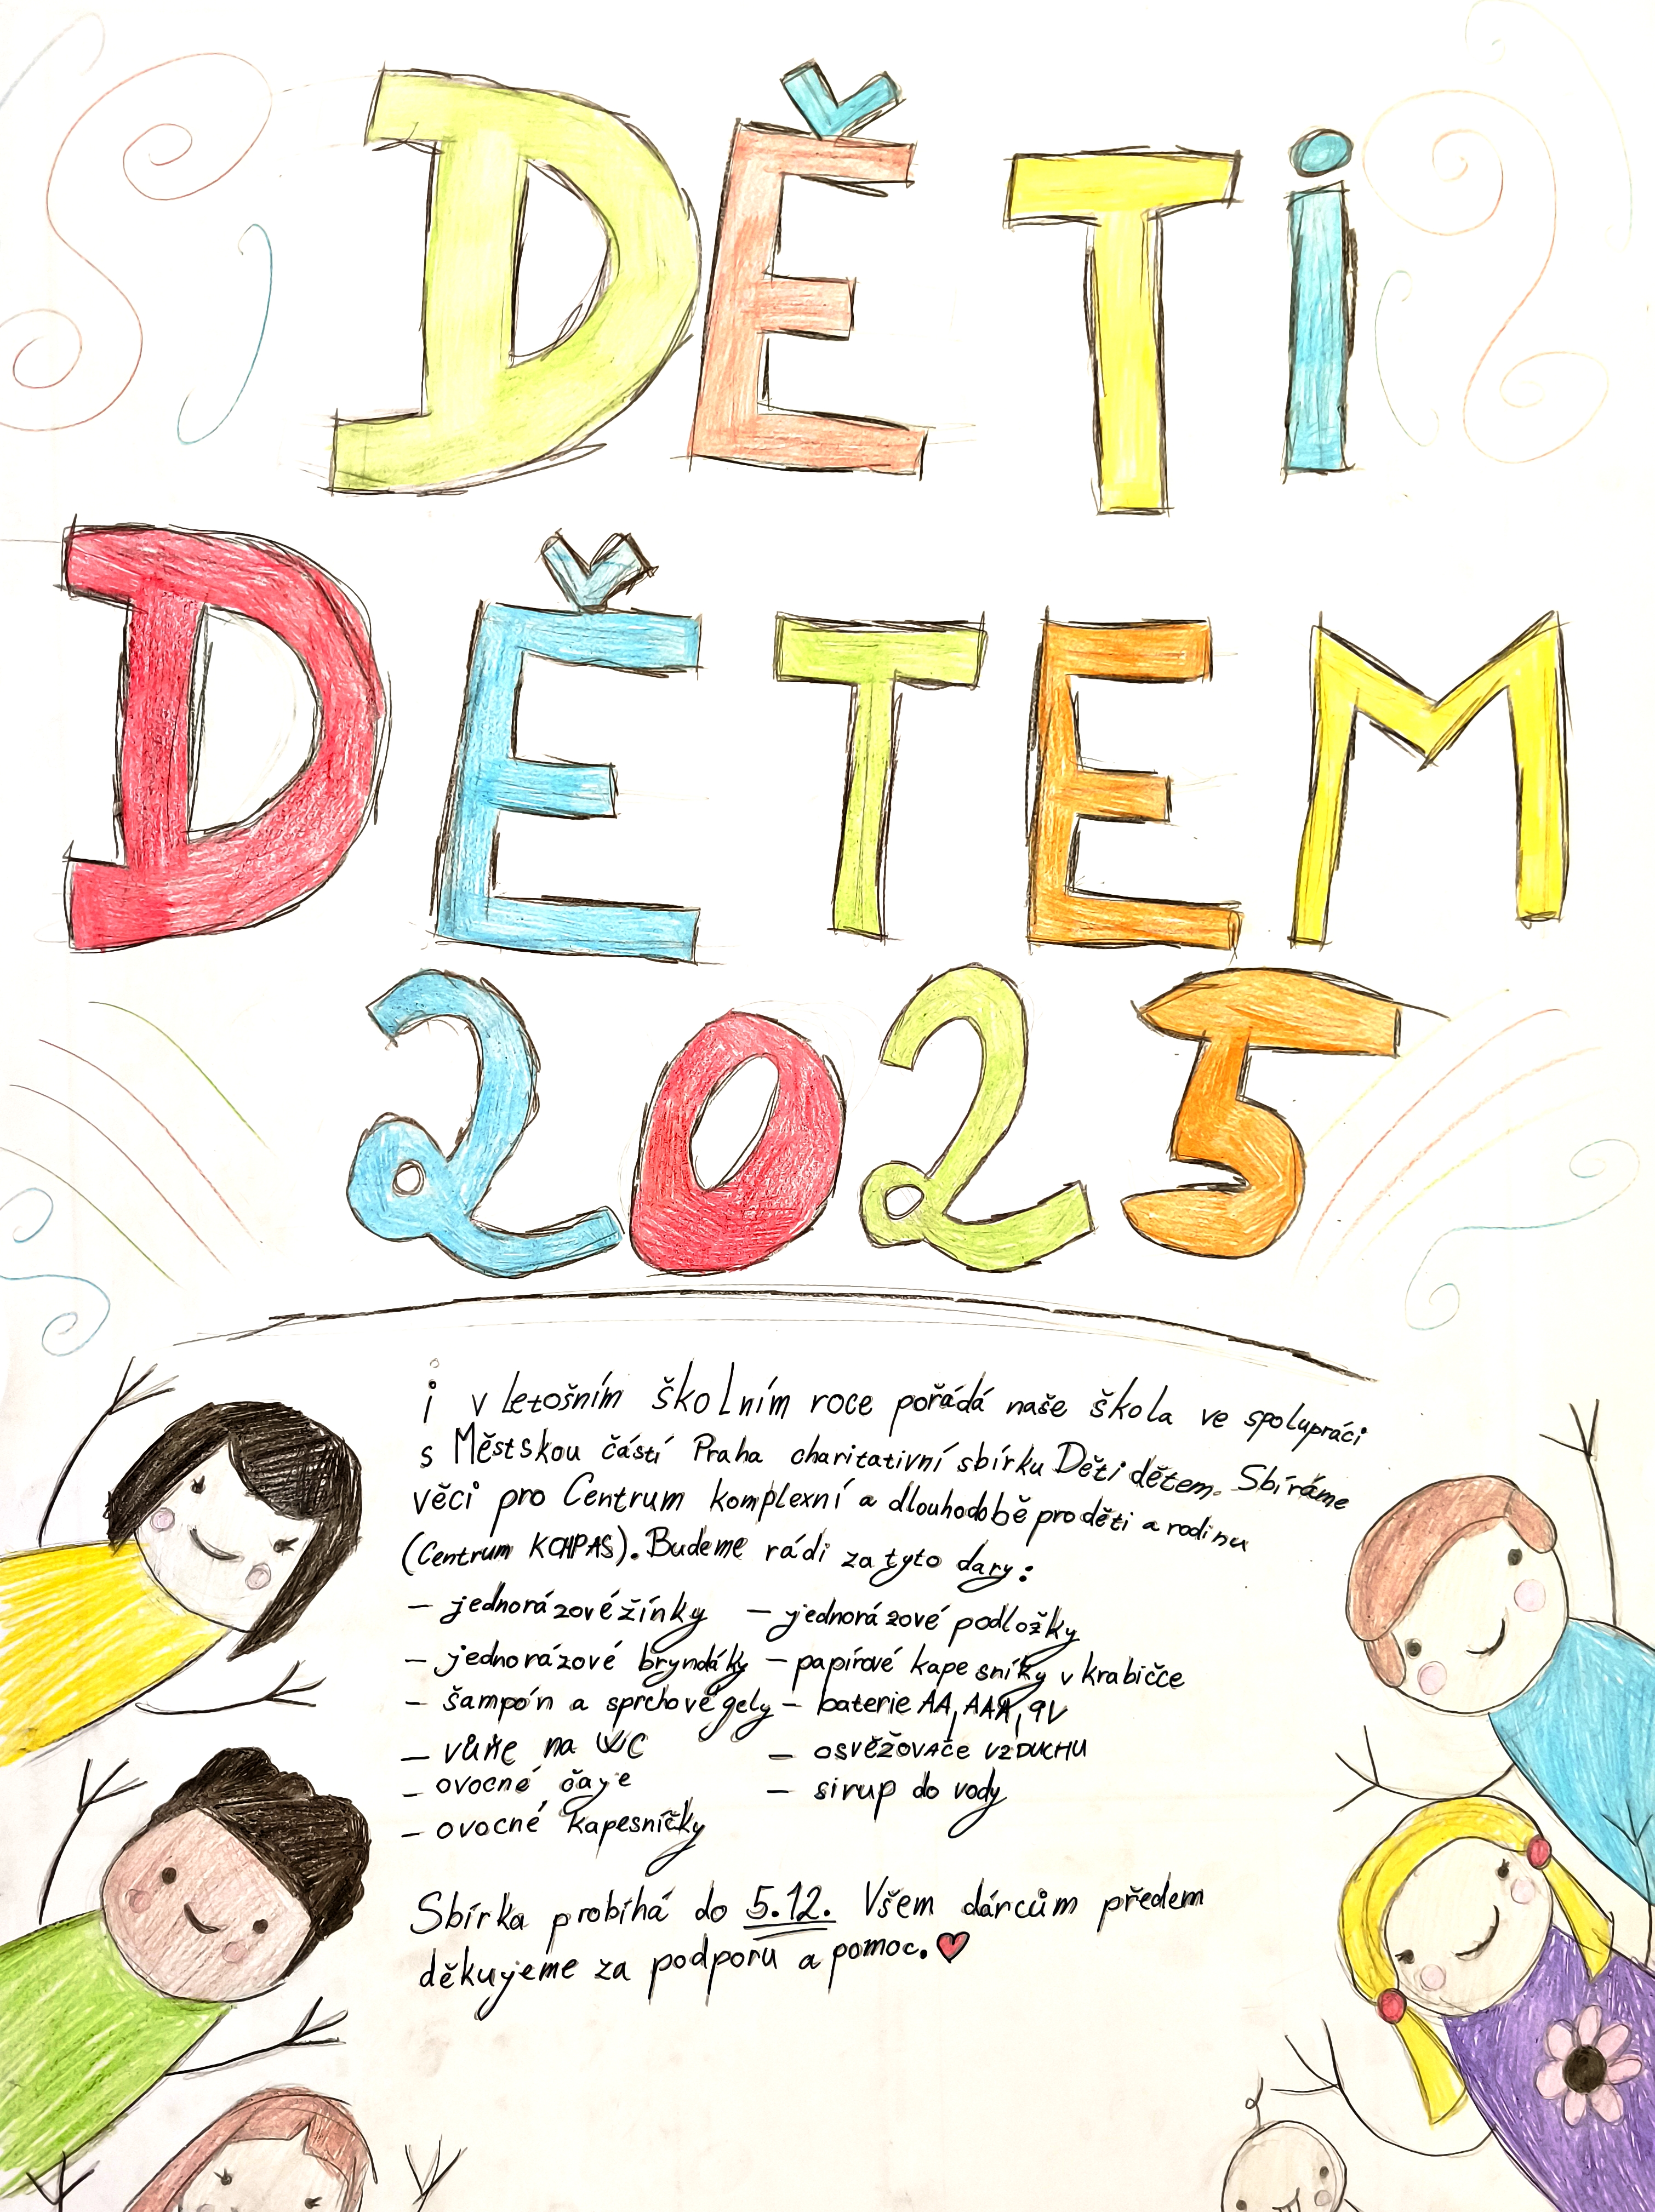 DĚTi
DĚTEM
2025
i v letošním školním roce pořádá naše škola ve spolupráci
s Městskou částí Praha charitativní sbírku Děti dětem. Sbíráme
věci pro Centrum komplexní a dlouhodobě pro děti a rodinu
(Centrum KCHPAS). Budeme rádi za tyto dary:
– jednorázové žínky – jednorázové podložky
– jednorázové bryndáky – papírové kapesníky v krabičce
– šampón a sprchové gely – baterie AA, AAA, 9V
– vůně na WC – osvěžovače vzduchu
– ovocné čaje – sirup do vody
– ovocné kapesníčky
Sbírka probíhá do 5.12. Všem dárcům předem
děkujeme za podporu a pomoc.